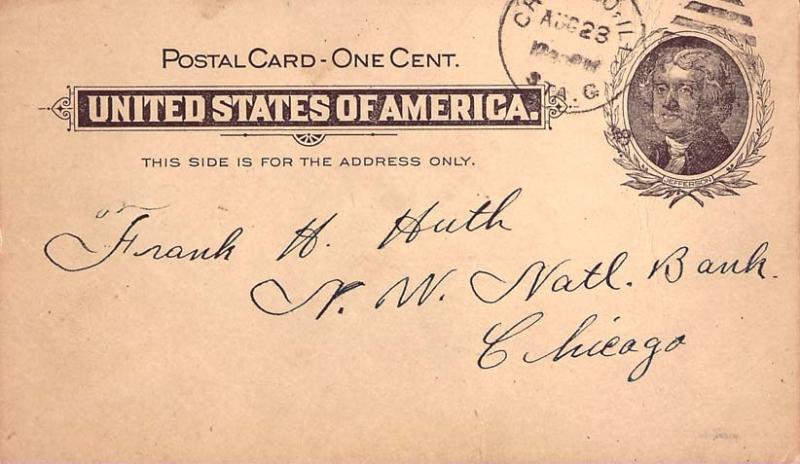 CHICAGO, ILL
AUG 23
STA. G
POSTAL CARD - ONE CENT.
UNITED STATES OF AMERICA.
THIS SIDE IS FOR THE ADDRESS ONLY.
JEFFERSON
Frank H. Huth
N. W. Natl. Bank.
Chicago